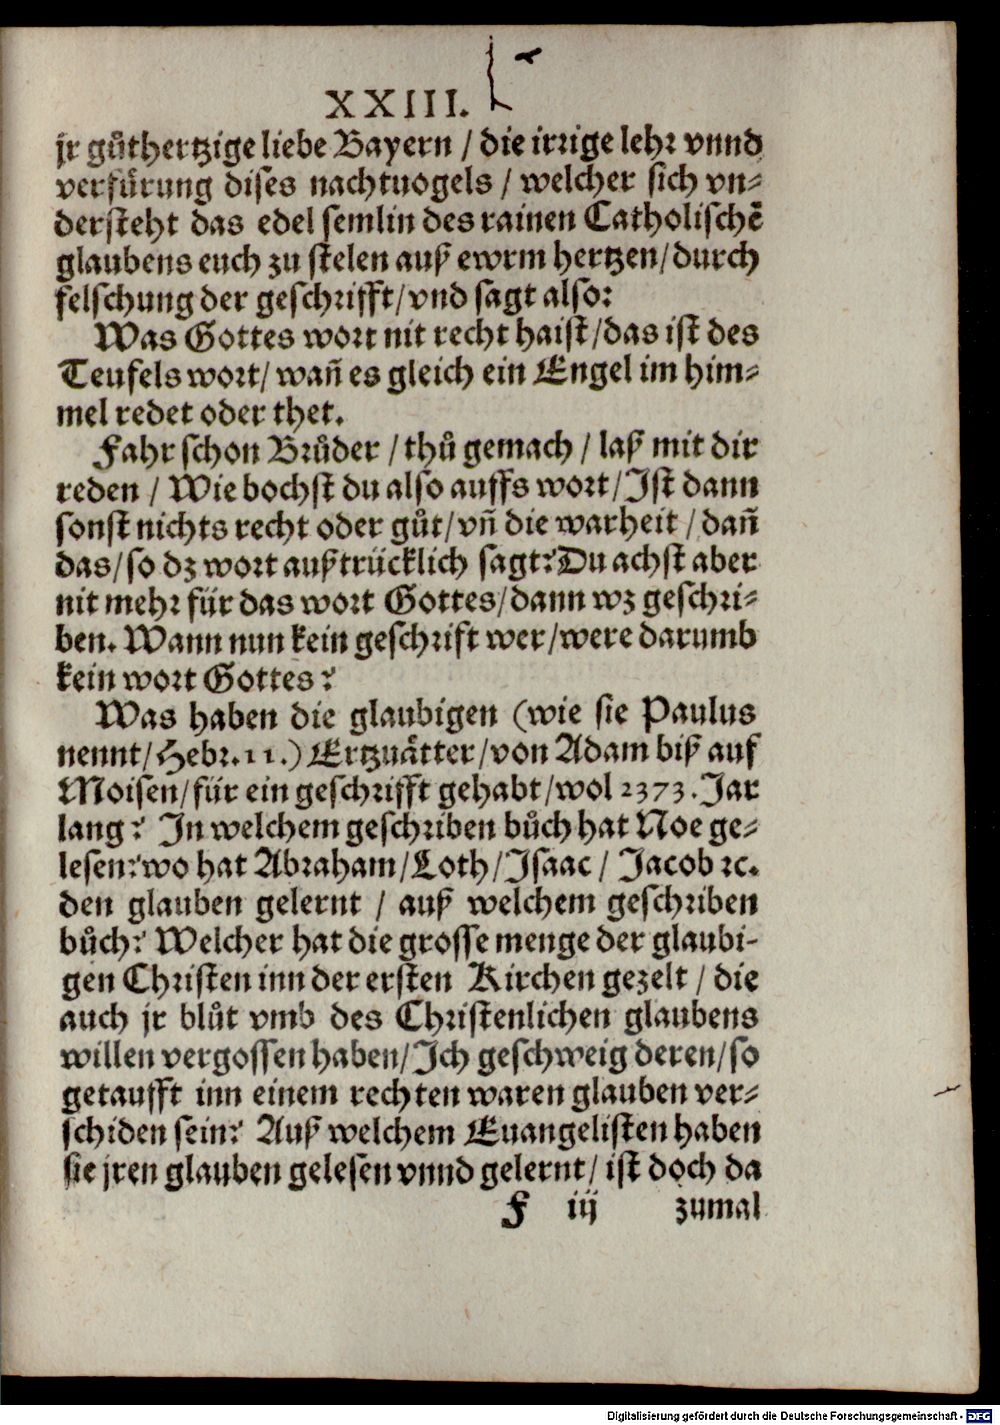 XXIII.
jr gůthertzige liebe Bayern / die irrige lehr vnnd
verfürung dises nachtuogels / welcher sich vn⸗
dersteht das edel semlin des rainen Catholischẽ
glaubens euch zu stelen auß ewrm hertzen/durch
felschung der geschrifft/vnd sagt also:
Was Gottes wort nit recht haist/das ist des
Teufels wort/ wañ es gleich ein Engel im him⸗
mel redet oder thet.
Fahr schon Brůder / thů gemach / laß mit dir
reden / Wie bochst du also auffs wort/Ist dann
sonst nichts recht oder gůt/vñ die warheit / dañ
das/so dz wort außtrücklich sagt? Du achst aber
nit mehr für das wort Gottes/dann wz geschri⸗
ben. Wann nun kein geschrift wer/were darumb
kein wort Gottes?
Was haben die glaubigen (wie sie Paulus
nennt/Hebr.11.) Ertzuätter/von Adam biß auf
Moisen/für ein geschrifft gehabt/wol 2373. Jar
lang? In welchem geschriben bůch hat Noe ge⸗
lesen? wo hat Abraham/Loth/Isaac/ Jacob ꝛc.
den glauben gelernt / auß welchem geschriben
bůch? Welcher hat die grosse menge der glaubi-
gen Christen inn der ersten Kirchen gezelt / die
auch jr blůt vmb des Christenlichen glaubens
willen vergossen haben/Ich geschweig deren/so
getaufft inn einem rechten waren glauben ver⸗
schiden sein? Auß welchem Euangelisten haben
sie jren glauben gelesen vnnd gelernt/ ist doch da
F iij zumal
Digitalisierung gefördert durch die Deutsche Forschungsgemeinschaft - DFG